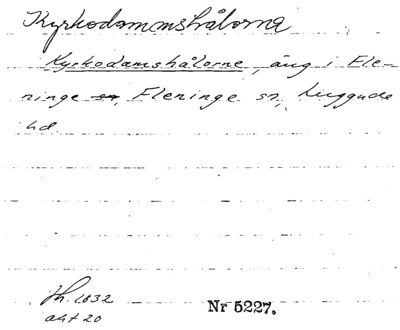 Kyrkodammshålorna
Kyrkodamshålorne, äng i Fle-
ninge sn, Fleninge sn, Luggude
hd.
Lh. 1832
akt 20
Nr 5227.